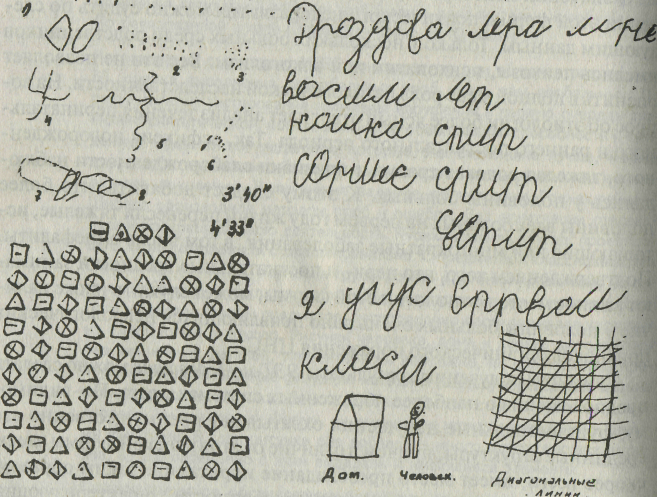 1
2
3
4
5
6
7
8
3'10"
4'33"
Дроздова Лера мне
восим лет
кошка спит
сорнце спит
светит
я учус вррвом
класи
Дом. Человек. Диагональные
линии